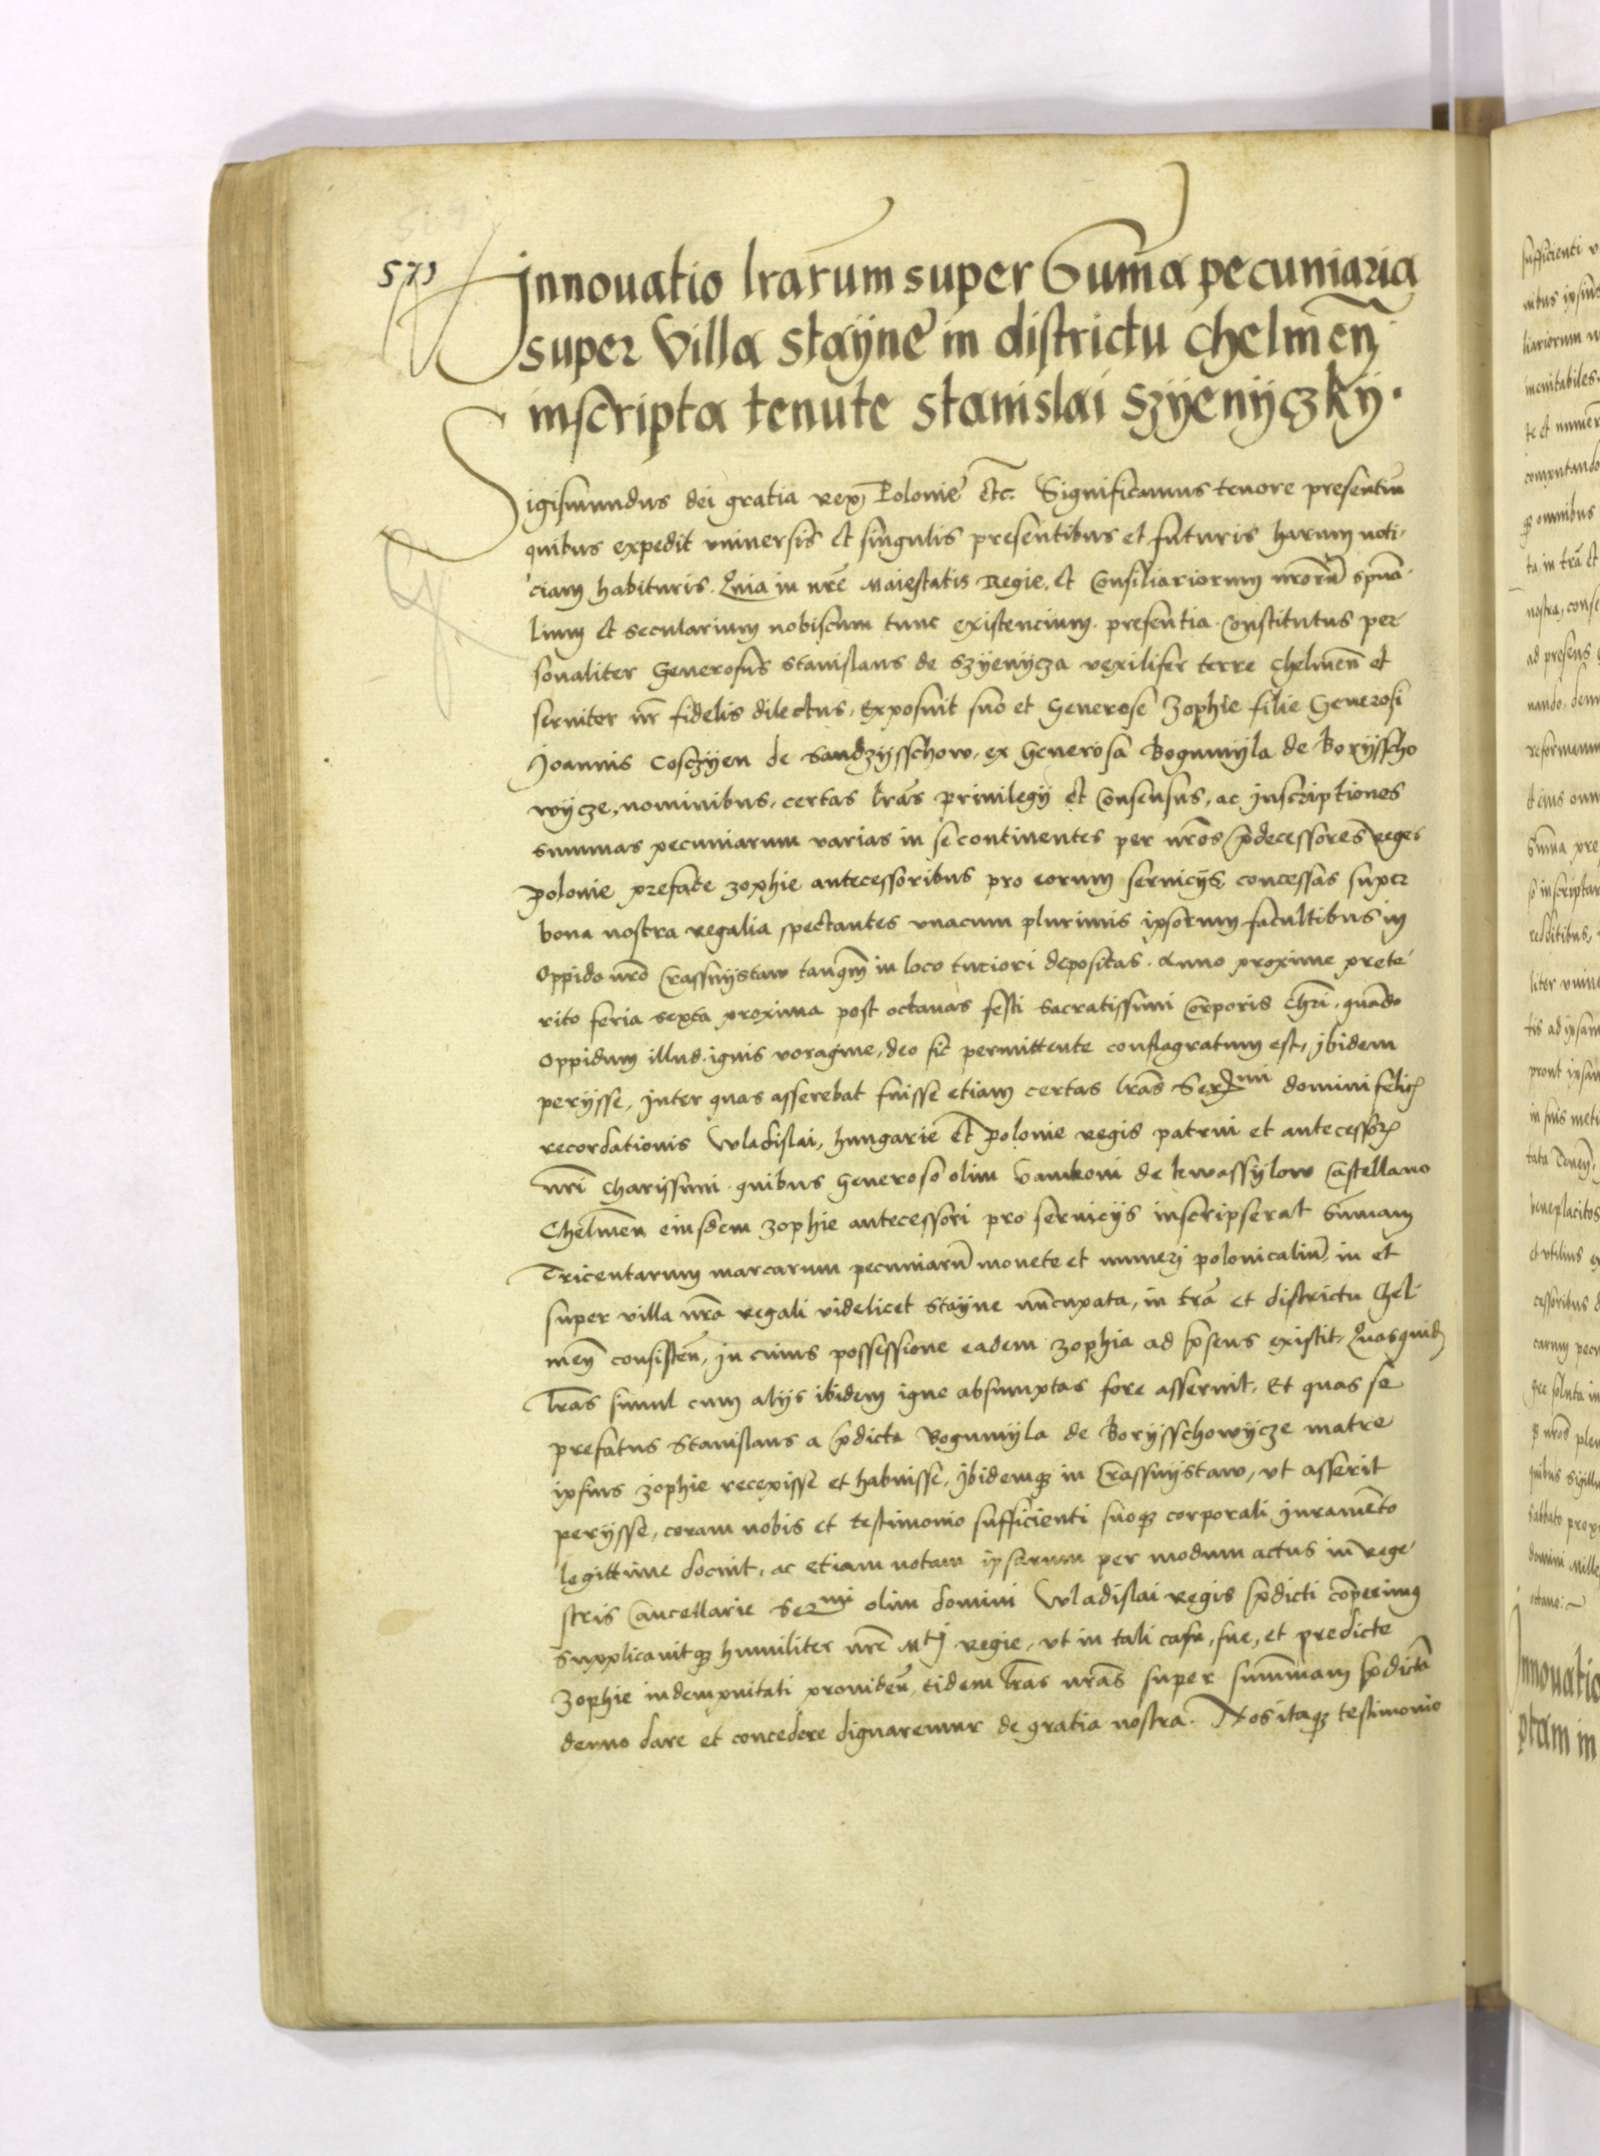 571
Innouatio lrarum super Sum̄a pecuniaria
super Villa Stayne in districtu Chelmen̄
inscripta tenute Stanislai Szyenyczky.
Sigismundus dei gratia rex Polonie etc. Significamus tenore presentiū
quibus expedit vniuersis et singulis presentibus et futuris harum noti-
ciam habituris. Quia in nr̄e Maiestatis Regie, et Consiliariorum nr̄orū spūa-
lium et secularium nobiscum tunc existencium presentia Constitutus per
sonaliter Generosus Stanislaus de Szyenycza vexilifer terre Chelmen̄ et
seruitor nr̄ fidelis dilectus, Exposuit suo et Generose Zophie filie Generosi
Joannis Cosczyen de Sandzysschow, ex Generosa Bogumyla de Borysscho
wycze, nominibus, certas lr̄as priuilegij et Consensus, ac Inscriptiones
summas pecuniarum varias in se continentes per nr̄os p̄decessores reges
Polonie prefate Zophie antecessoribus pro eorum seruicijs concessas super
bona nostra regalia spectantes vnacum plurimis ipsorum facultibus in
oppido nr̄o Crassnystaw tanq̄m in loco tuciori depositas. Anno proxime prete-
rito feria sexta proxima post octauas festi Sacratissimi Corporis Chr̄i, quando
oppidum illud ignis voragine, deo sic permittente conflagratum est, Ibidem
perysse, Inter quas asserebat fuisse etiam certas lr̄as Ser^mi domini felic̄
recordationis Wladislai, hungarie et Polonie regis patrui et antecessor̄
nr̄i Charyssimi quibus Generoso olim Vankoni de Kwassylow Castellano
Chelmen̄ eiusdem Zophie antecessori pro seruicijs inscripserat Sum̄am
Tricentarum marcarum pecuniarū monete et numeri polonicaliū, in et
super villa nr̄a regali videlicet Stayne nūcupata, in tr̄a et districtu Chel-
men̄ consisten̄, in cuius possessione eadem Zophia ad p̄sens existit, Quasquid̄
lr̄as simul cum alijs ibidem igne absumptas fore asseruit, Et quas se
prefatus Stanislaus a p̄dicta Bogumyla de Borysschowycze matre
ipsius Zophie recepisse et habuisse, Ibidemq̄ in Crassnystaw, vt asserit
perysse, coram nobis et testimonio sufficienti suoq̄ corporali Iuramēto
legittime docuit, ac etiam notam ipsarum per modum actus in rege-
stris Cancellarie Ser^mi olim domini Wladislai regis p̄dicti cōperimus
Supplicauitq̄ humiliter nr̄e M^tj regie, vt in tali casu, sue, et predicte
Zophie indempnitati prouiden̄, eidem lr̄as nr̄as super summam p̄dictā
denuo dare et concedere dignaremur de gratia nostra. Nos itaq̄ testimonio
sufficienti
Innouatio
ptam in